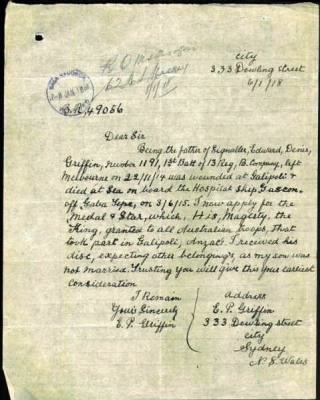 City
333 Dowling street
6/1/18
B.R. 49056
Dear Sir
Being the father of Signaller, Edward, Denis,
Griffin, number 1191, 13st Batt of 13 Reg, B. Company, left
Melbourne on 22/11/14 was wounded at Galipoli &
died at Sea on board the Hospital Ship Gascon.
off Gaba Tepe, on 3/6/15. I now apply for the
Medal & Star, which, His, Magesty, the
King, granted to all Australian troops, that
took part in Galipoli, Anzac. I received his
disc, expecting other belongings, as my son was
not married. Trusting you will give this your earliest
Consideration
I Remain
Yours Sincerly
E. P. Griffin
Address
E. P. Griffin
333 Dowling street
City
Sydney
N. S. Wales